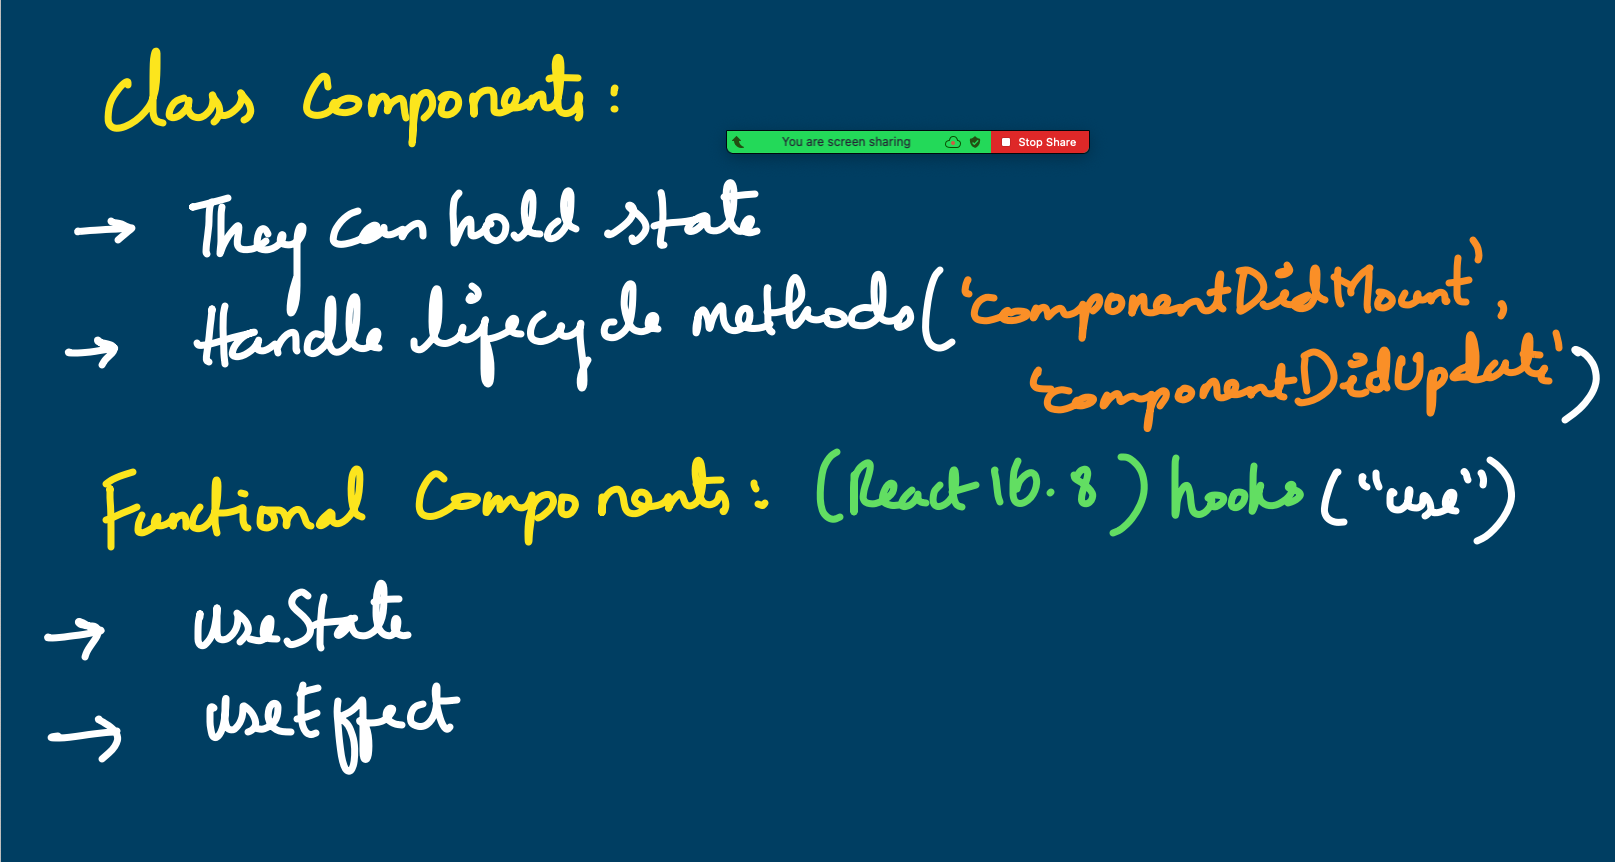 Class Components:
You are screen sharing Stop Share
→ They can hold state
→ Handle lifecycle methods ('componentDidMount',
'componentDidUpdate')
Functional Components: (React 16.8) hooks ("use")
→ useState
→ useEffect